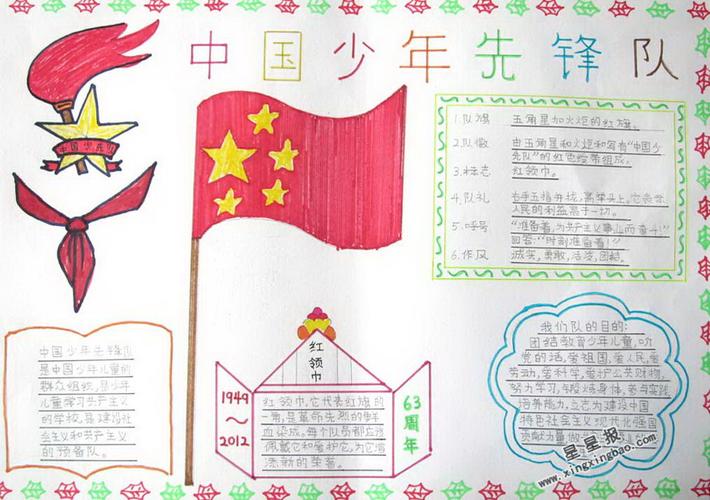 中国少年先锋队
中国少先队
1.队旗 五角星加火炬的红旗。
2.队徽 由五角星和火炬和写有“中国少
先队”的红色绶带组成。
3.标志 红领巾。
4.队礼 右手五指并拢,高举头上。它表示
人民的利益高于一切。
5.呼号 “准备着,为共产主义事业而奋斗!”
回答:“时刻准备着!”
6.作风 诚实,勇敢,活泼,团结。
中国少年先锋队
是中国少年儿童的
群众组织,是少年
儿童学习共产主义
的学校,是建设社
会主义和共产主义
的预备队。
红领巾
1949
～
2012
红领巾,它代表红旗的
一角,是革命先烈的鲜
血染成。每个队员都应该
佩戴它和爱护它,为它增
添新的荣誉。
63周年
我们队的目的:
团结教育少年儿童,听
党的话,爱祖国,爱人民,爱
劳动,爱科学,爱护公共财物,
努力学习,锻炼身体,参与实践,
培养能力,立志为建设中国
特色社会主义现代化强国
贡献力量
星星报
www.xingxingbao.com